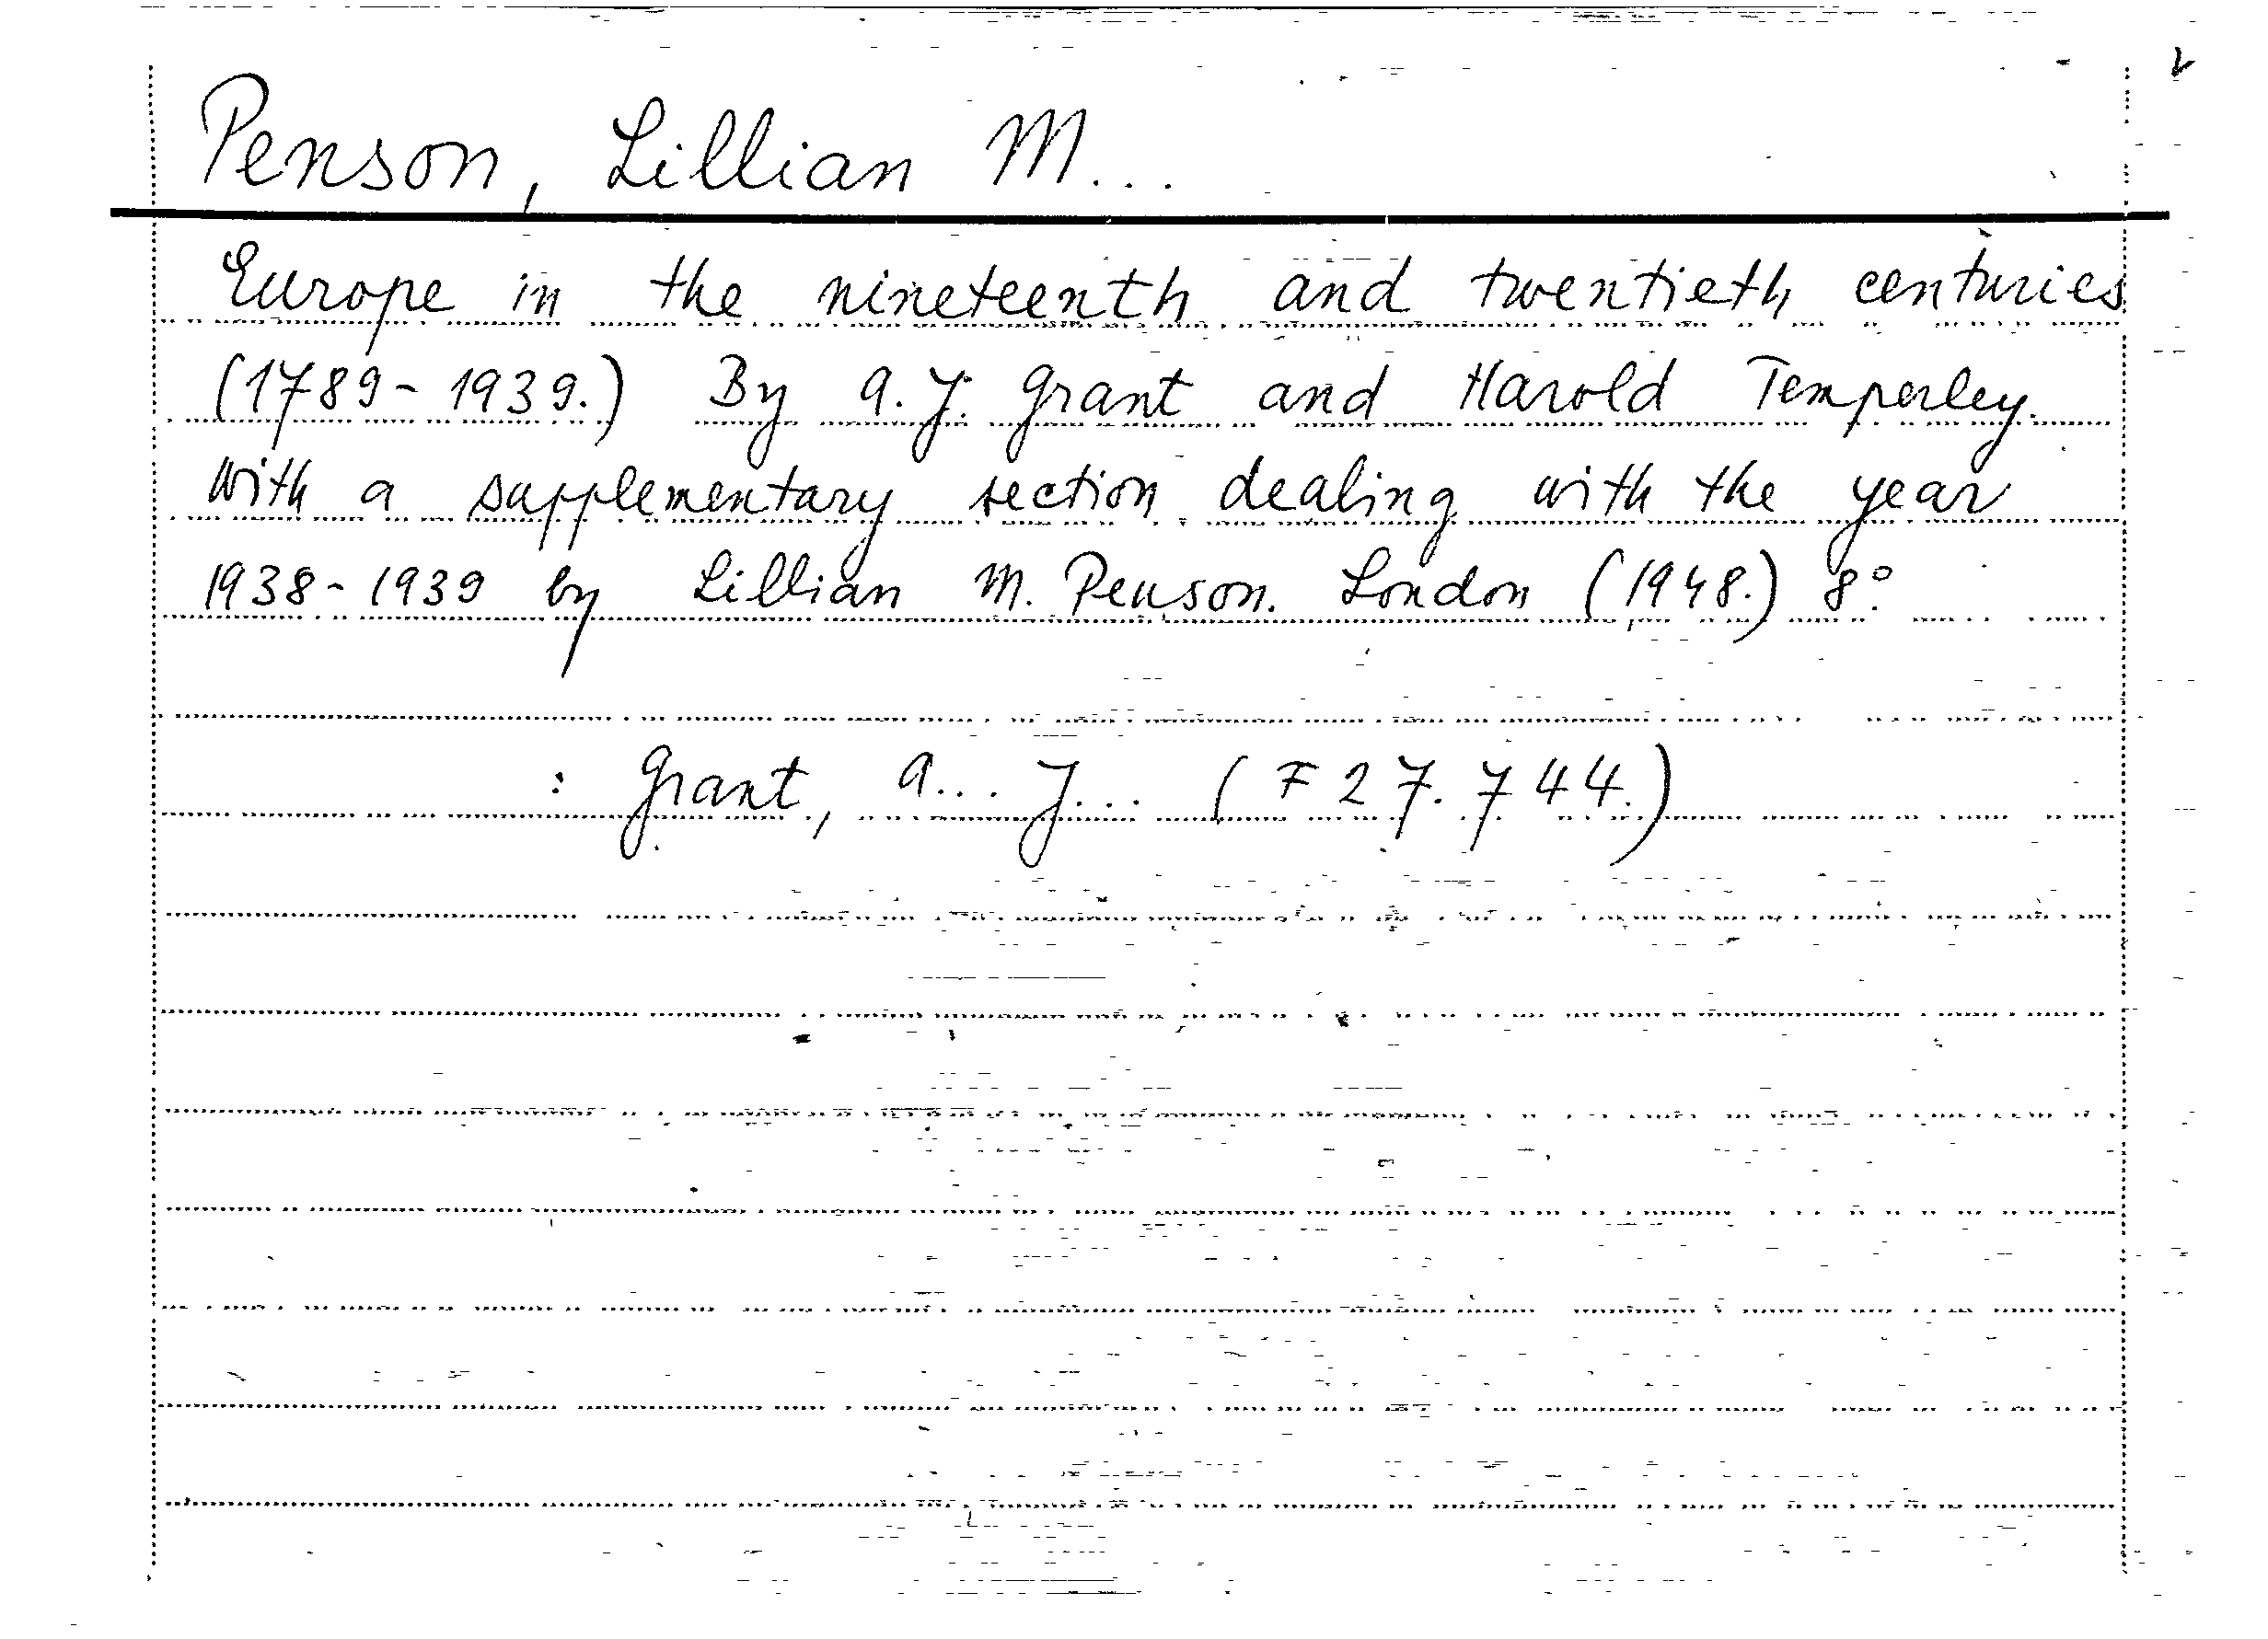 Penson, Lillian M...
Europe in the nineteenth and twentieth centuries
(1789-1939.) By A. J. Grant and Harold Temperley.
With a supplementary section dealing with the year
1938-1939 by Lillian M. Penson. London (1948.) 8°.
: Grant, A... J... (F 27.744.)